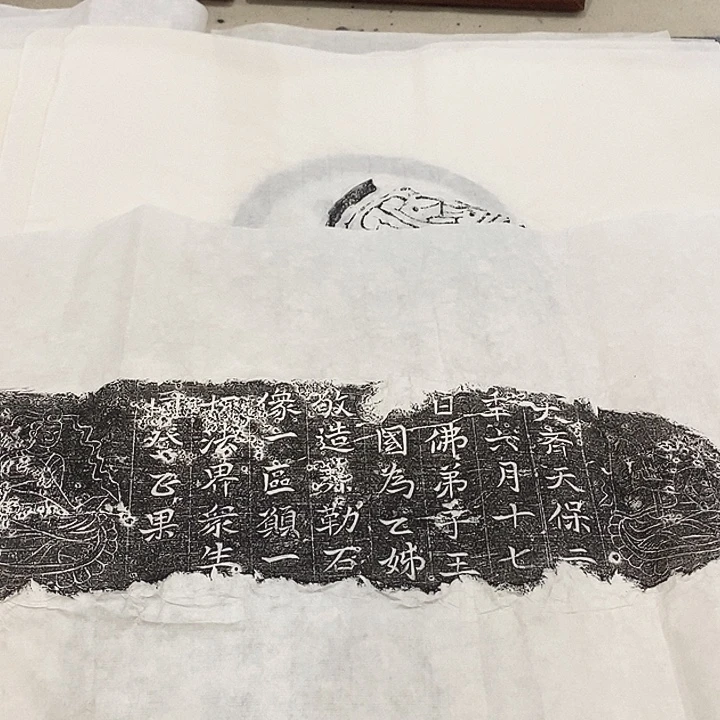 大齊天保二
年六月十七
日佛弟子王
國為亡姊
敬造弥勒石
像一區願一
切法界眾生
同登正果